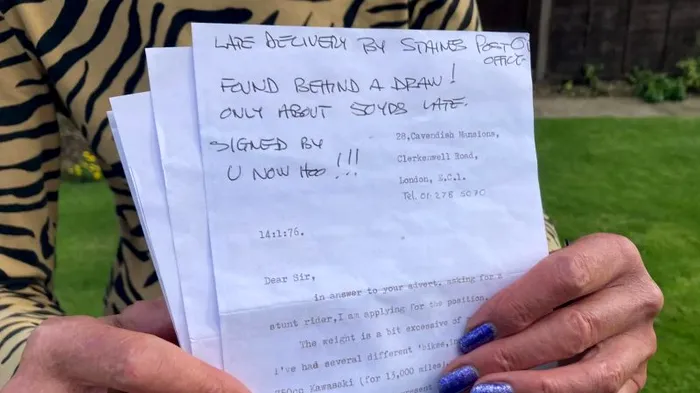 LATE DELIVERY BY STAINES POST
OFFICE
FOUND BEHIND A DRAW!
ONLY ABOUT 50YDS LATE.
SIGNED BY
U NOW HOO!!!
28,Cavendish Mansions,
Clerkenwell Road,
London, E.C.1.
Tel. 01 278 5070
14:1:76.
Dear Sir,
in answer to your advert. asking for a
stunt rider,I am applying for the position.
The weight is a bit excessive of
I've had several different 'bikes,
Kawasaki (for 13,000 miles)